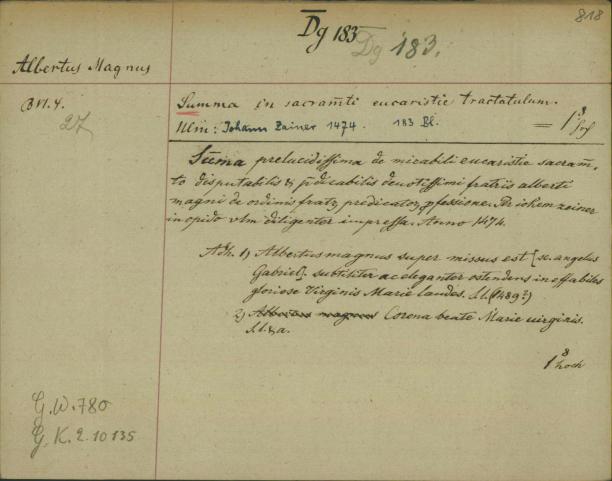 818
Dg 183 Dg 183.
Albertus Magnus
B VI. 4.
27
Summa in sacram̄ti eucaristie tractatulum.
Ulm: Johann Zainer 1474. 183 Bl. = 1 8 fol
Sum̄a prelucidissima de mirabili eucaristie sacram̄-
to disputabilis & p̄dicabilis deuotissimi fratris alberti
magni de ordinis frat predicator pfessione. Per iohem zeiner
in opido vlm diligenter impressa. Anno 1474.
Adh. 1) Albertus magnus super missus est [sc. angelus
Gabriel]. subtiliter ac eleganter ostendens in effabiles
gloriose Virginis Marie laudes. s.l. (1489?)
2) Albertus magnus Corona beate Marie virginis.
s.l. & a.
1 8 hoch
G.W. 780
G.K. 2.10135